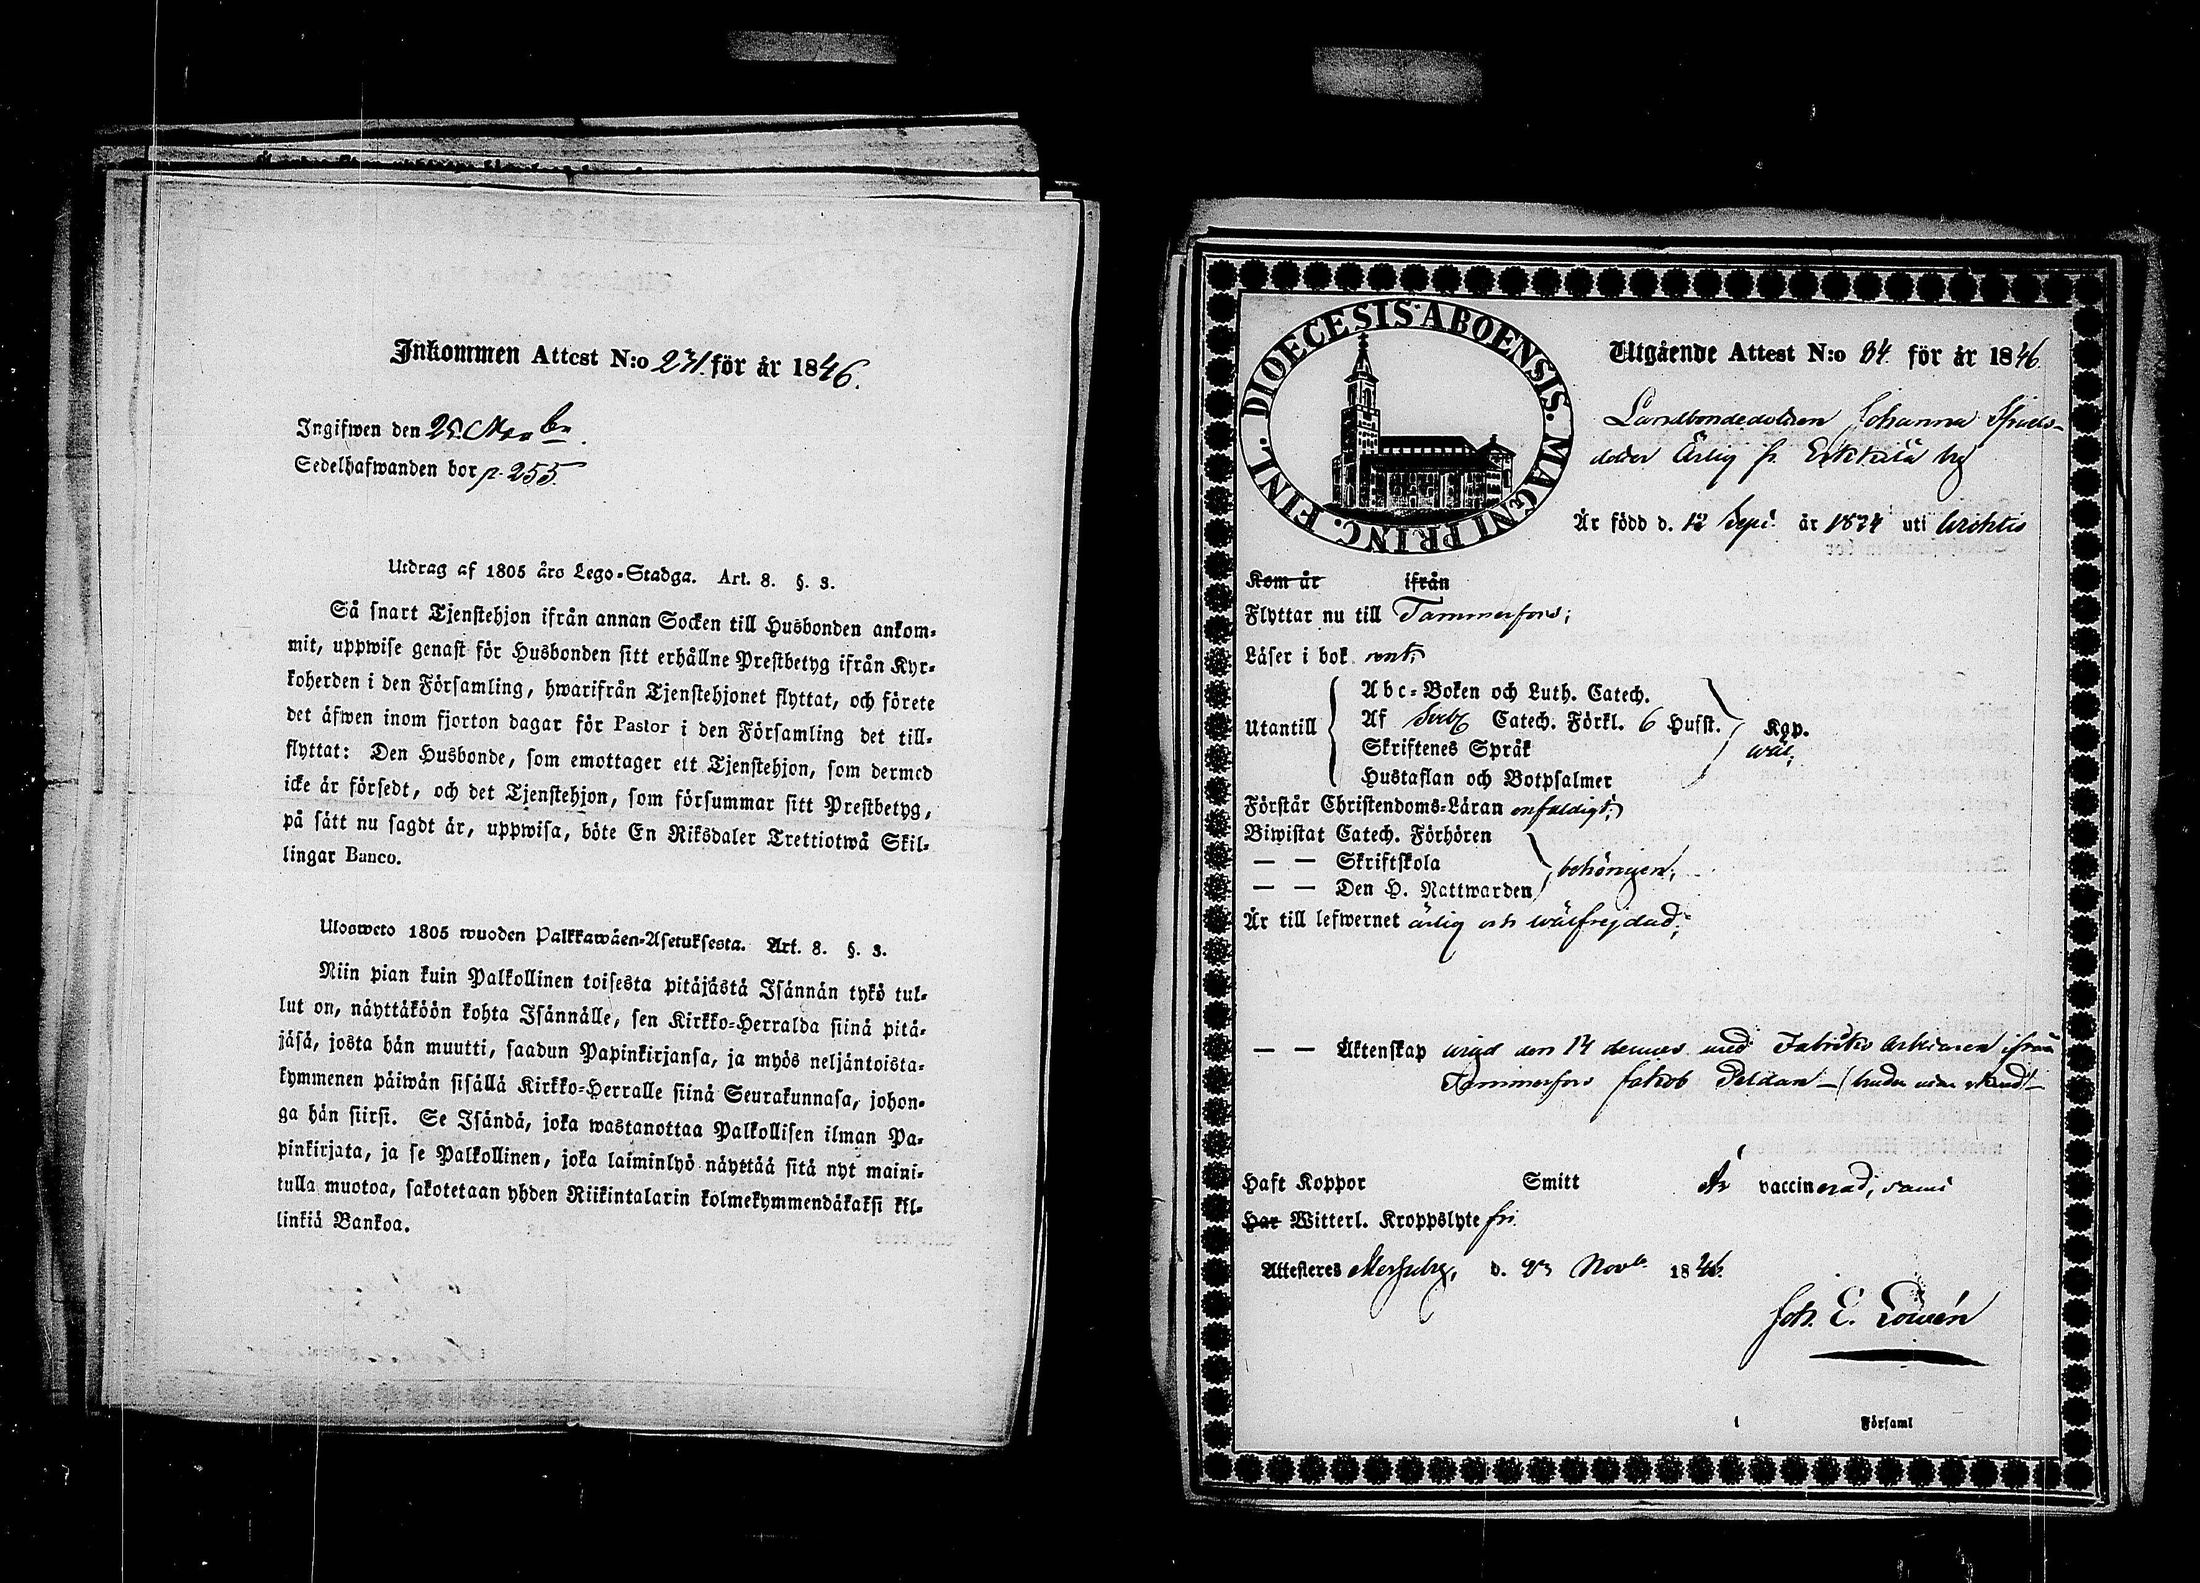 Inkommen Attest N:o 231. för år 1846.
Ingifwen den 25. Novbr.
Sedelhafwanden bor p. 255.
Utdrag af 1805 års Lego-Stadga. Art. 8. §. 3.
Så snart Tjenstehjon ifrån annan Socken till Husbonden ankom-
mit, uppwise genast för Husbonden sitt erhållne Prestbetyg ifrån Kyr-
koherden i den Församling, hwarifrån Tjenstehjonet flyttat, och förete
det äfwen inom fjorton dagar för Pastor i den Församling det till-
flyttat: Den Husbonde, som emottager ett Tjenstehjon, som dermed
icke är försedt, och det Tjenstehjon, som försummar sitt Prestbetyg,
på sätt nu sagdt är, uppwisa, böte En Riksdaler Trettiotwå Skil-
lingar Banco.
Ulosweto 1805 wuoden Palkkawäen-Asetuksesta. Art. 8. §. 3.
Niin pian kuin Palkollinen toisesta pitäjästä Isännän tykö tul-
lut on, näyttäköön kohta Isännälle, sen Kirkko-Herralda siinä pitä-
jäsä, josta hän muutti, saadun Papinkirjansa, ja myös neljäntoista-
kymmenen päiwän sisällä Kirkko-Herralle siinä Seurakunnasa, johon-
ga hän siirsi. Se Isändä, joka wastanottaa Palkollisen ilman Pa-
pinkirjata, ja se Palkollinen, joka laiminlyö näyttää sitä nyt maini-
tulla muotoa, sakotetaan yhden Riikintalarin kolmekymmendäkaksi kil-
linkiä Bankoa.
DIOECESIS ABOENSIS. MAGNI PRINC. FINL.
Utgående Attest N:o 84. för år 1846.
Landbondedottren Johanna
dotter Ärlig fr. Erkkilä by
Är född d. 12 Sept. år 1824 uti
Kom år ifrån
Flyttar nu till Tammerfors;
Läser i bok rent;
Utantill
Abc-Boken och Luth. Catech.
Af Sveb. Catech. Förkl. 6 Hufst.
Skriftenes Språk
Hustaflan och Botpsalmer
Kgp.
wäl;
Förstår Christendoms-Läran enfaldigt;
Biwistat Catech. Förhören
— — Skriftskola
— — Den H. Nattwarden
behörigen;
Är till lefwernet ärlig och wälfrejdad;
— — Äktenskap wigd den 14 dennes med Fabriks Arbetaren ifrån
Tammerfors Jakob Peldan —
Haft Koppor Smitt Är vaccinerad, samt
Har Witterl. Kroppslyte fri.
Attesteres d. 23 Novbr. 1846.
Joh. E. Lowén
i Församl